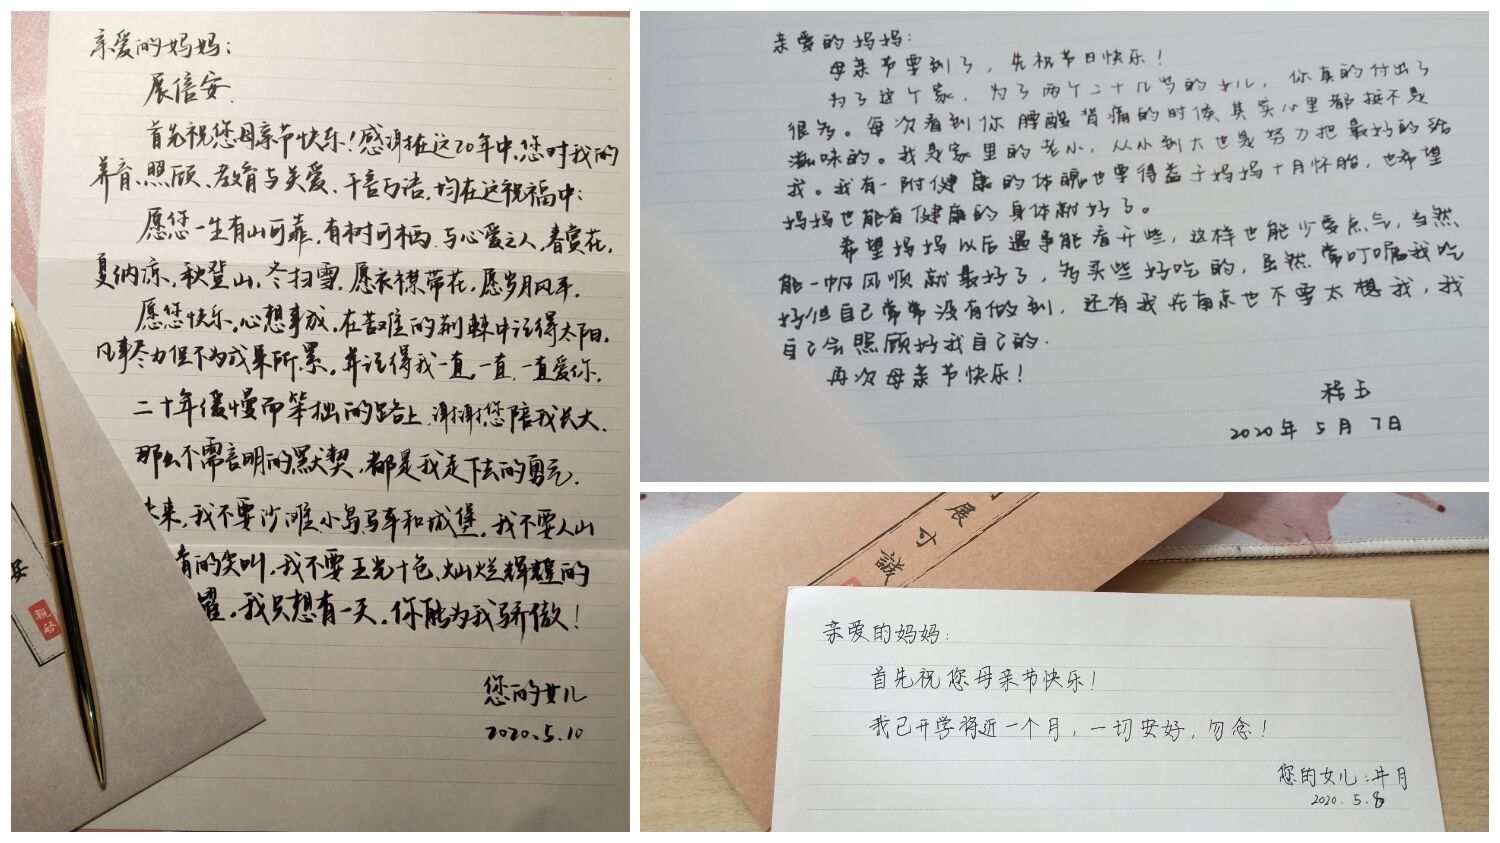 亲爱的妈妈：
展信安.
首先祝您母亲节快乐！感谢在这20年中,您对我的
养育、照顾、教育与关爱、千言万语,均在这祝福中：
愿您一生有山可靠,有树可栖,与心爱之人,春赏花,
夏纳凉,秋登山,冬扫雪,愿衣襟带花,愿岁月风平.
愿您快乐,心想事成,在苦难的荆棘中记得太阳,
凡事尽力但不为成果所累,并记得我一直,一直,一直爱你.
二十年缓慢而笨拙的路上,谢谢您陪我长大.
那么不需言明的默契,都是我走下去的勇气.
未来,我不要沙滩小岛马车和城堡,我不要人山
的尖叫,我不要五光十色,灿烂辉煌的
耀,我只想有一天,你能为我骄傲！
您的女儿
2020.5.10
安
亲啟
亲爱的妈妈：
母亲节要到了，先祝节日快乐！
为了这个家，为了两个二十几岁的女儿，你真的付出了
很多。每次看到你腰酸背痛的时候其实心里都挺不是
滋味的。我是家里的老小，从小到大也是努力把最好的给
我。我有一附健康的体魄也要得益于妈妈十月怀胎，也希望
妈妈也能有健康的身体就好了。
希望妈妈以后遇事能看开些，这样也能少受点气，当然
能一帆风顺就最好了，多买些好吃的，虽然常叮嘱我吃
好但自己常常没有做到，还有我在南京也不要太想我，我
自己会照顾好我自己的.
再次母亲节快乐！
2020年5月7日
展寸誠
亲爱的妈妈：
首先祝您母亲节快乐！
我已开学将近一个月，一切安好，勿念！
您的女儿：井月
2020.5.8